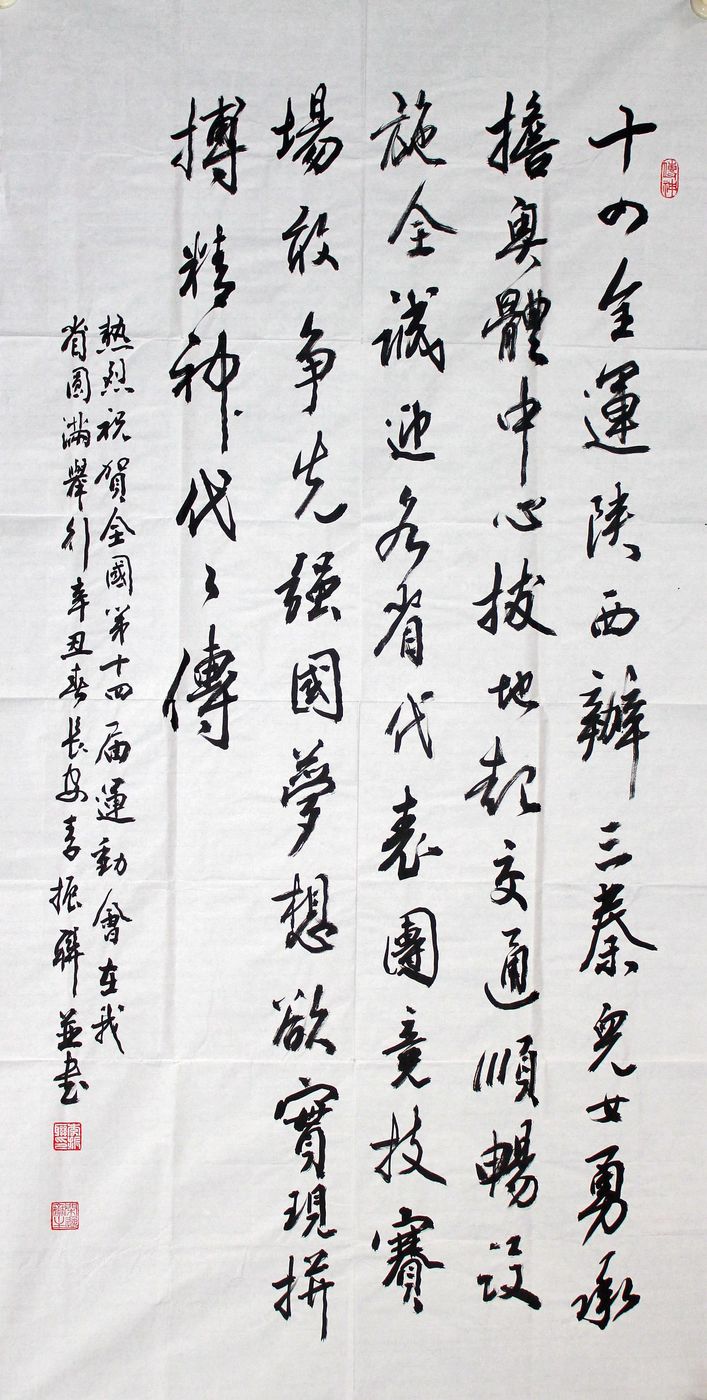 十四全運陝西辦三秦兒女勇承
擔奧體中心拔地起交通順暢設
施全誠迎各省代表團竟技賽
場敢争先强國夢想欲實現拼
搏精神代々傳
熱烈祝賀全國第十四屆運動會在我
省圓滿舉行辛丑春長安李振聯並书